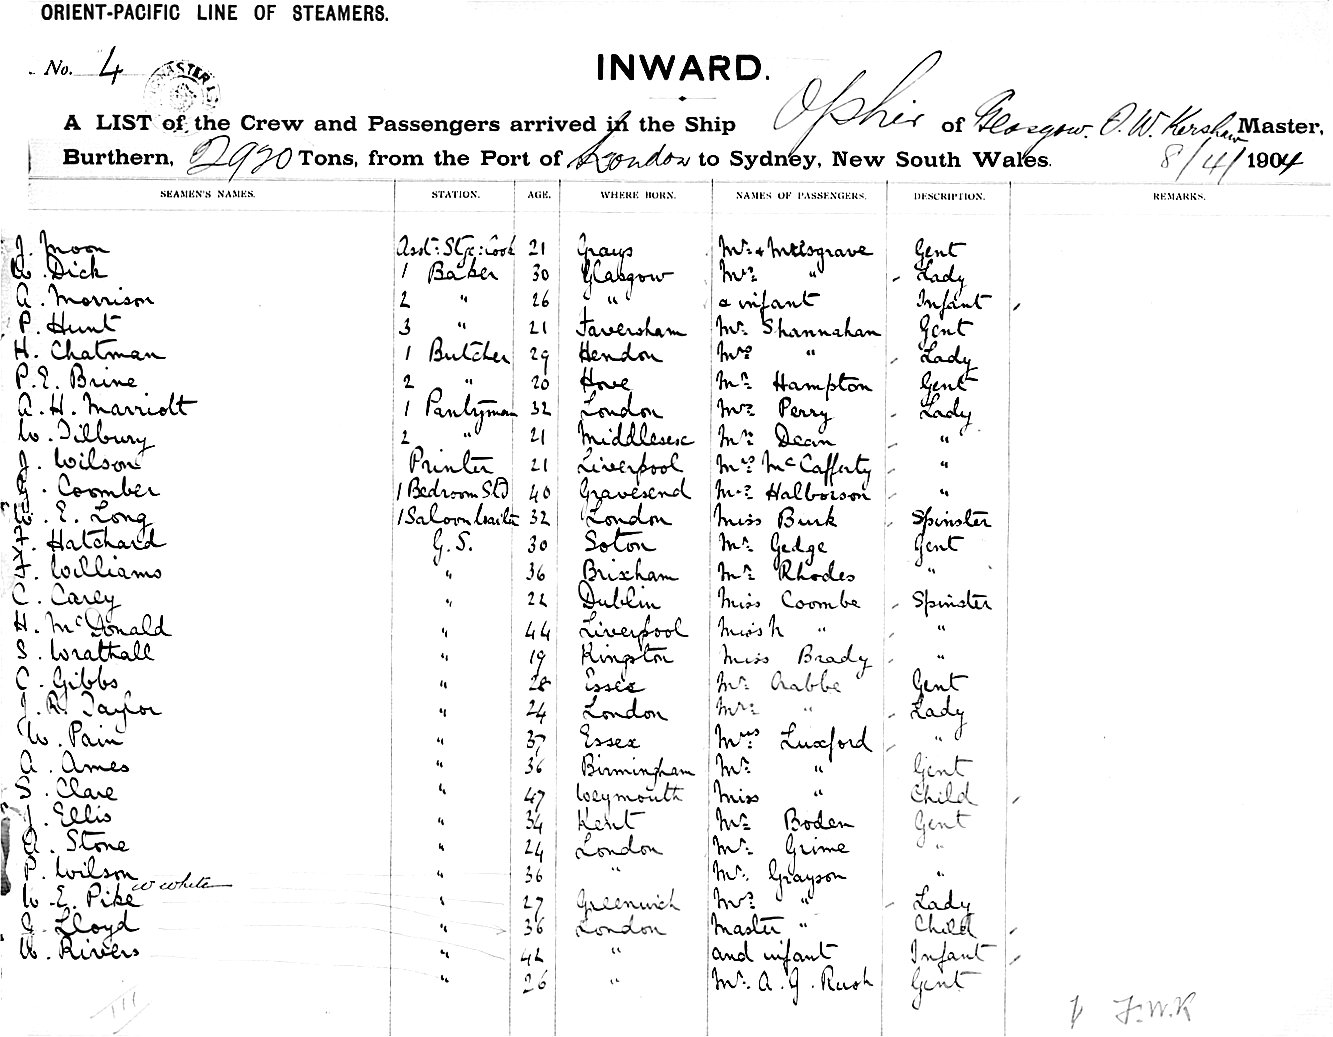 ORIENT-PACIFIC LINE OF STEAMERS.
No. 4
INWARD.
A LIST of the Crew and Passengers arrived in the Ship Ophir of Glasgow. Kershaw Master,
Burthern, 2920 Tons, from the Port of London to Sydney, New South Wales. 8/4/1904
SEAMEN'S NAMES. STATION. AGE. WHERE BORN. NAMES OF PASSENGERS. DESCRIPTION. REMARKS.
J. Moon Asst: Stge: Cook 21 Grays Mr. & Gent
W. Dick 1 Baker 30 Glasgow Mrs " Lady
A. Morrison 2 " 26 " & infant Infant
P. Hunt 3 " 21 Faversham Mr. Shannahan Gent
H. Chatman 1 Butcher 29 Hendon Mrs " Lady
P.E. Brine 2 " 20 Hove Mr. Hampton Gent
A. H. Marriott 1 Pantryman 32 London Mrs Perry Lady
W. Tilbury 2 " 21 Middlesex Mrs Dean "
J. Wilson Printer 21 Liverpool Mrs McCafferty "
G. Coomber 1 Bedroom Std 40 Gravesend Mrs Halborson "
E. Long 1 Saloon Waiter 32 London Miss Burk Spinster
F. Hatchard G.S. 30 Soton Mr. Gedge Gent
F. Williams " 36 Brixham Mr. Rhodes "
C. Carey " 22 Dublin Miss Coombe Spinster
H. McDonald " 44 Liverpool Miss N " "
S. Wrathall " 19 Kingston Miss Brady "
C. Gibbs " 28 Essex Mr. Crabbe Gent
J. R. Taylor " 24 London Mrs " Lady
W. Pain " 37 Essex Mrs Luxford "
A. Ames " 36 Birmingham Mr. " Gent
S. Clare " 47 Weymouth Miss " Child
J. Ellis " 34 Kent Mr. Boden Gent
A. Stone " 24 London Mr. Grime "
P. Wilson " 36 " Mr. Grayson "
W White
W. E. Pike " 27 Greenwich Mrs " Lady
G. Lloyd " 36 London Master " Child
W. Rivers " 42 " and infant Infant
" 26 " Mr. A. G. Rush Gent
F.W.K